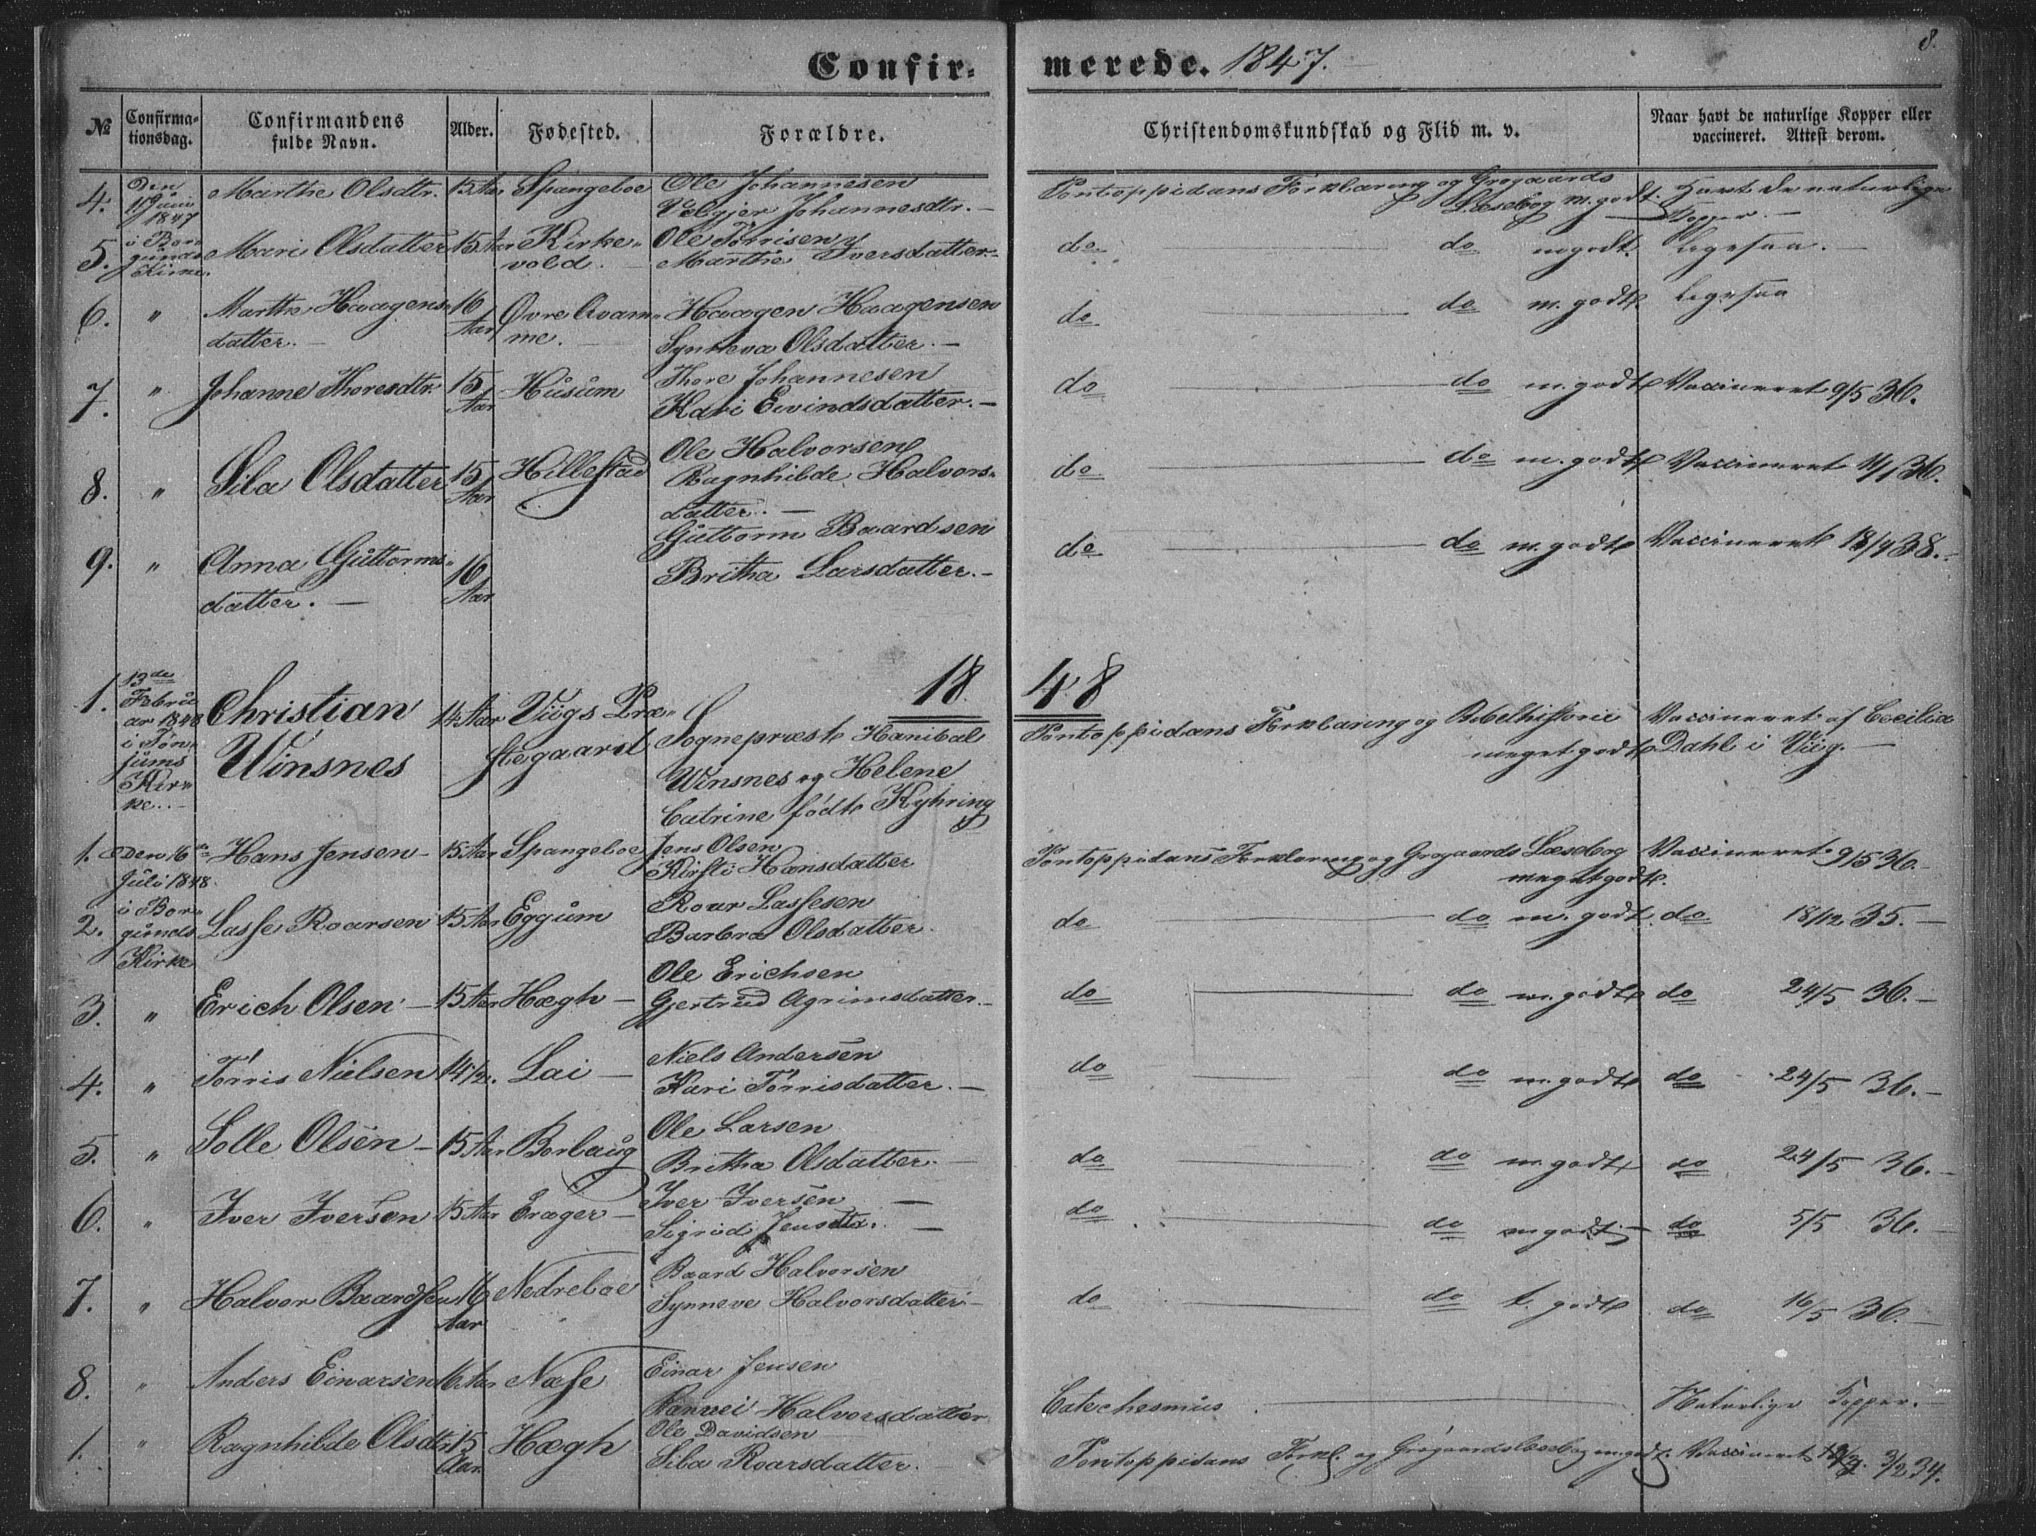 8.
Confir-merede. 1847.
№ Confirma-tionsdag. Confirmandens fulde Navn. Alder. Fødested. Forældre. Christendomskundskab og Flid m. v. Naar havt de naturlige Kopper eller vaccineret. Attest derom.
4. Den Juni 1847 Marthe Olsdtr. 15 Aar Spangeloe Ole Johannesen Johannesdtr. Pontoppidans Forklaring og Grøgaards Læsebog m. godt. Havt de naturlige Kopper.
5. i Bor-gunds Kirke Mari Olsdatter 15 Aar Kirke-vold. Ole Tørrisen Marthe Iversdatter. do do m godt. Ligesaa.
6. " Marthe Haagens-datter. 16 Aar Øvre Qvam-me. Haagen Haagensen Synneva Olsdatter. do do m. godt Ligesaa
7. " Johanne Thoresdtr. 15 Aar Husum Thore Johannesen Kari Eivindsdatter. do do m. godt Vaccineret 9/5 36.
8. " Sila Olsdatter 15 Aar Hillestad Ole Halvorsen Ragnhilde Halvors-datter. do do m. godt Vaccineret 36.
9. " Anna Guttorms-datter. 16 Aar Guttorm Baardsen Britha Larsdatter. do do m. godt Vaccineret 38.
1848
1. 13de Februar 1848 i Tøn-jums Kir-ke. Christian Winsnes 14 Aar Viigs Præ-stegaard Sognepræst Hanibal Winsnes og Helene Catrine født Hyhring Pontoppidans Forklaring og Bibelhistorie meget godt Vaccineret af Cecilia Dahl i Viig.
1. Den 16de Juli 1848. Hans Jensen 15 Aar Spangeloe Jens Olsen Kirsti Hansdatter Pontoppidans Forklaring og Grøgaards Læsebog meget godt. Vaccineret 9/5 36.
2. i Bor-gunds Kirke Lasse Roarsen 15 Aar Eggum Roar Lassesen Barbra Olsdatter. do do m. godt. do 18/12 35.
3. " Erich Olsen 15 Aar Hægh Ole Erichsen Gjertrud Agrimsdatter. do do m. godt do 24/5 36.
4. " Tørris Nielsen 14 1/2. Lai Niels Andersen Kari Tørrisdatter. do do m. godt do 24/5 36.
5. " Solle Olsen 15 Aar Borlaug Ole Larsen Britha Olsdatter. do do m. godt do 24/5 36.
6. " Iver Iversen 15 Aar Erager Iver Iversen Sigrid Jensdtr. do do m godt. do 5/5 36.
7. " Halvor Baardsen 16 Aar Nedreboe Baard Halvorsen Synneve Halvorsdatter do do t. godt do 16/5 36.
8. " Anders Einarsen 16 Aar Næse Einar Jensen Rannei Halvorsdatter Catechesmus Naturlige Kopper.
1. " Ragnhilde Olsdtr. 15 Aar. Hægh Ole Davidsen Siba Roarsdatter. Pontoppidans Forkl. og Grøgaards Læsebog m. godt. Vaccineret 3/2 34.